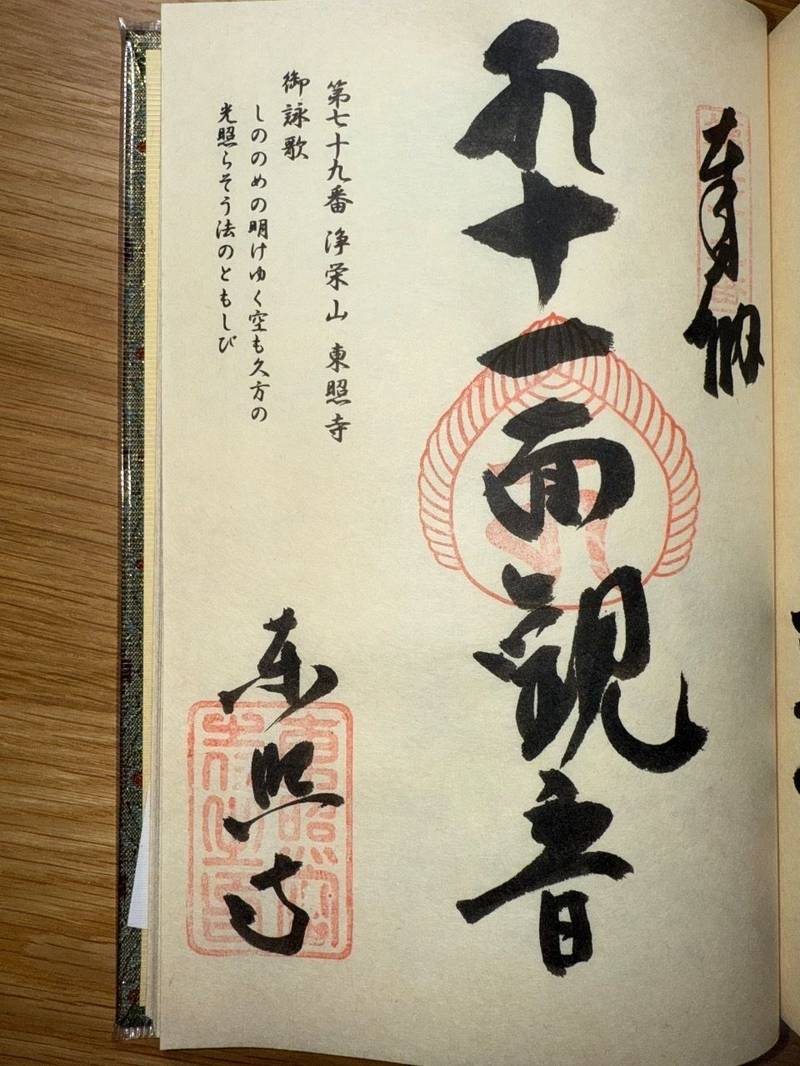 奉納
十一面観音
第七十九番 浄栄山 東照寺
御詠歌
しののめの明けゆく空も久方の
光照らそう法のともしび
東照寺